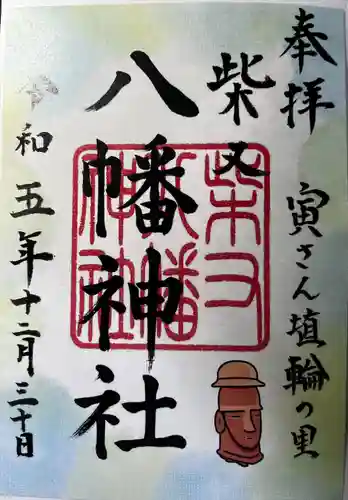 奉拝
寅さん埴輪の里
柴又
八幡神社
和五年十二月三十日
柴又
八幡
神社